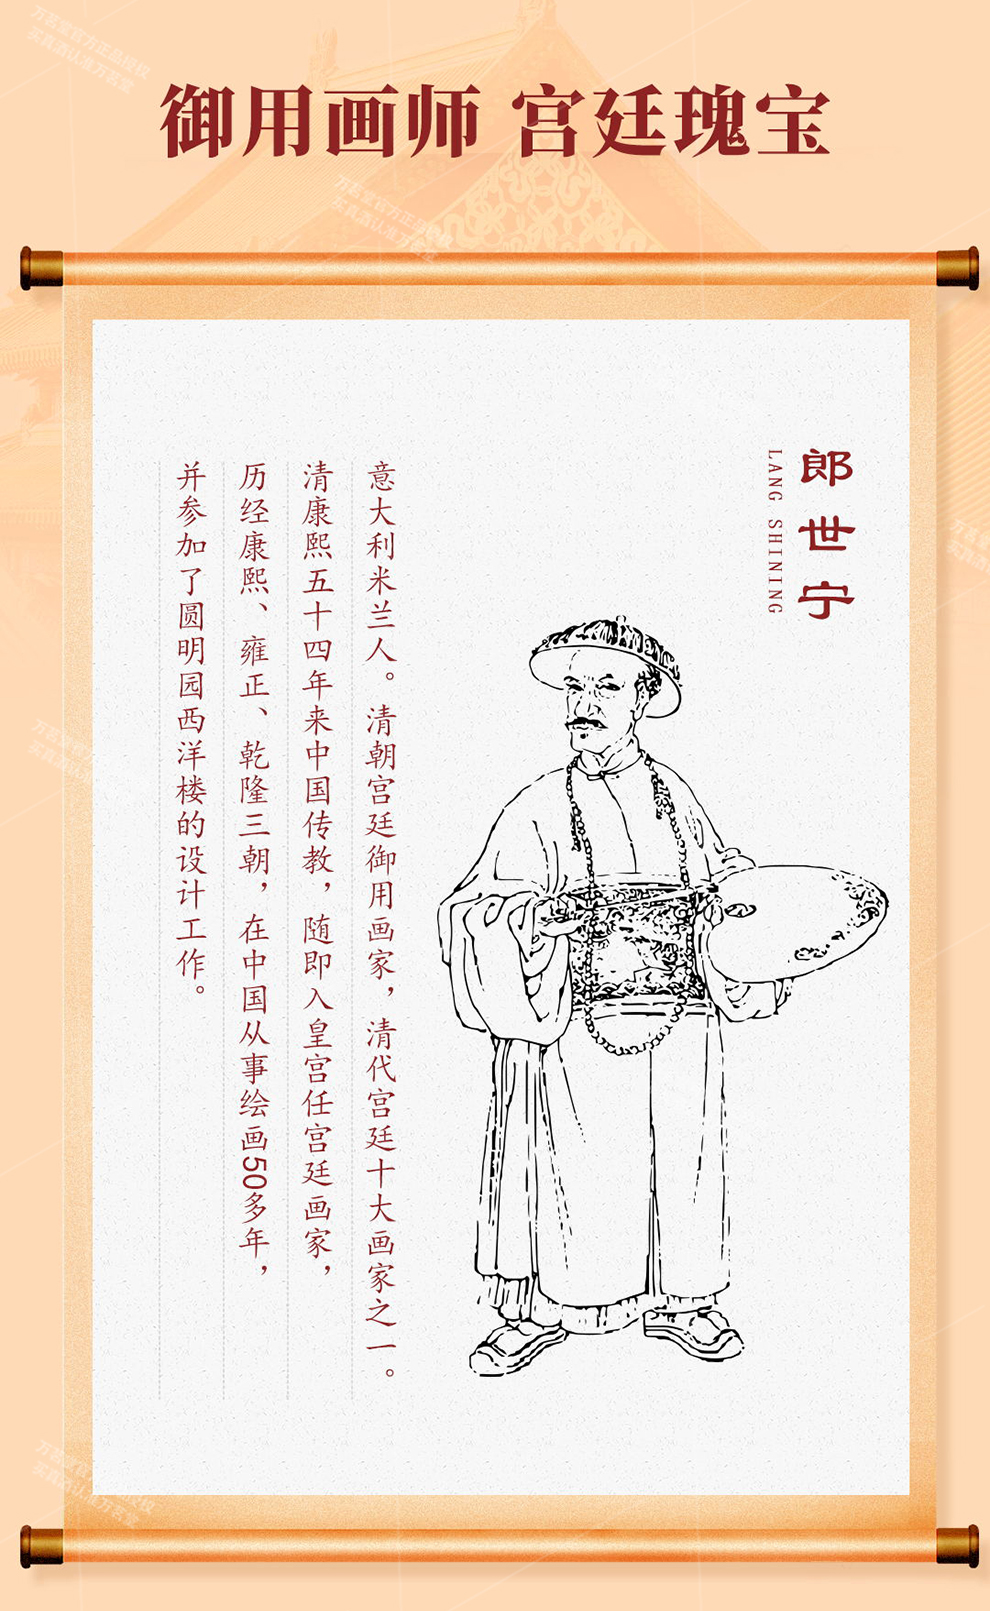 御用画师 宫廷瑰宝
郎世宁
LANG SHINING
意大利米兰人。清朝宫廷御用画家，清代宫廷十大画家之一。
清康熙五十四年来中国传教，随即入皇宫任宫廷画家，
历经康熙、雍正、乾隆三朝，在中国从事绘画50多年，
并参加了圆明园西洋楼的设计工作。
万茗堂官方正品授权
买真酒认准万茗堂